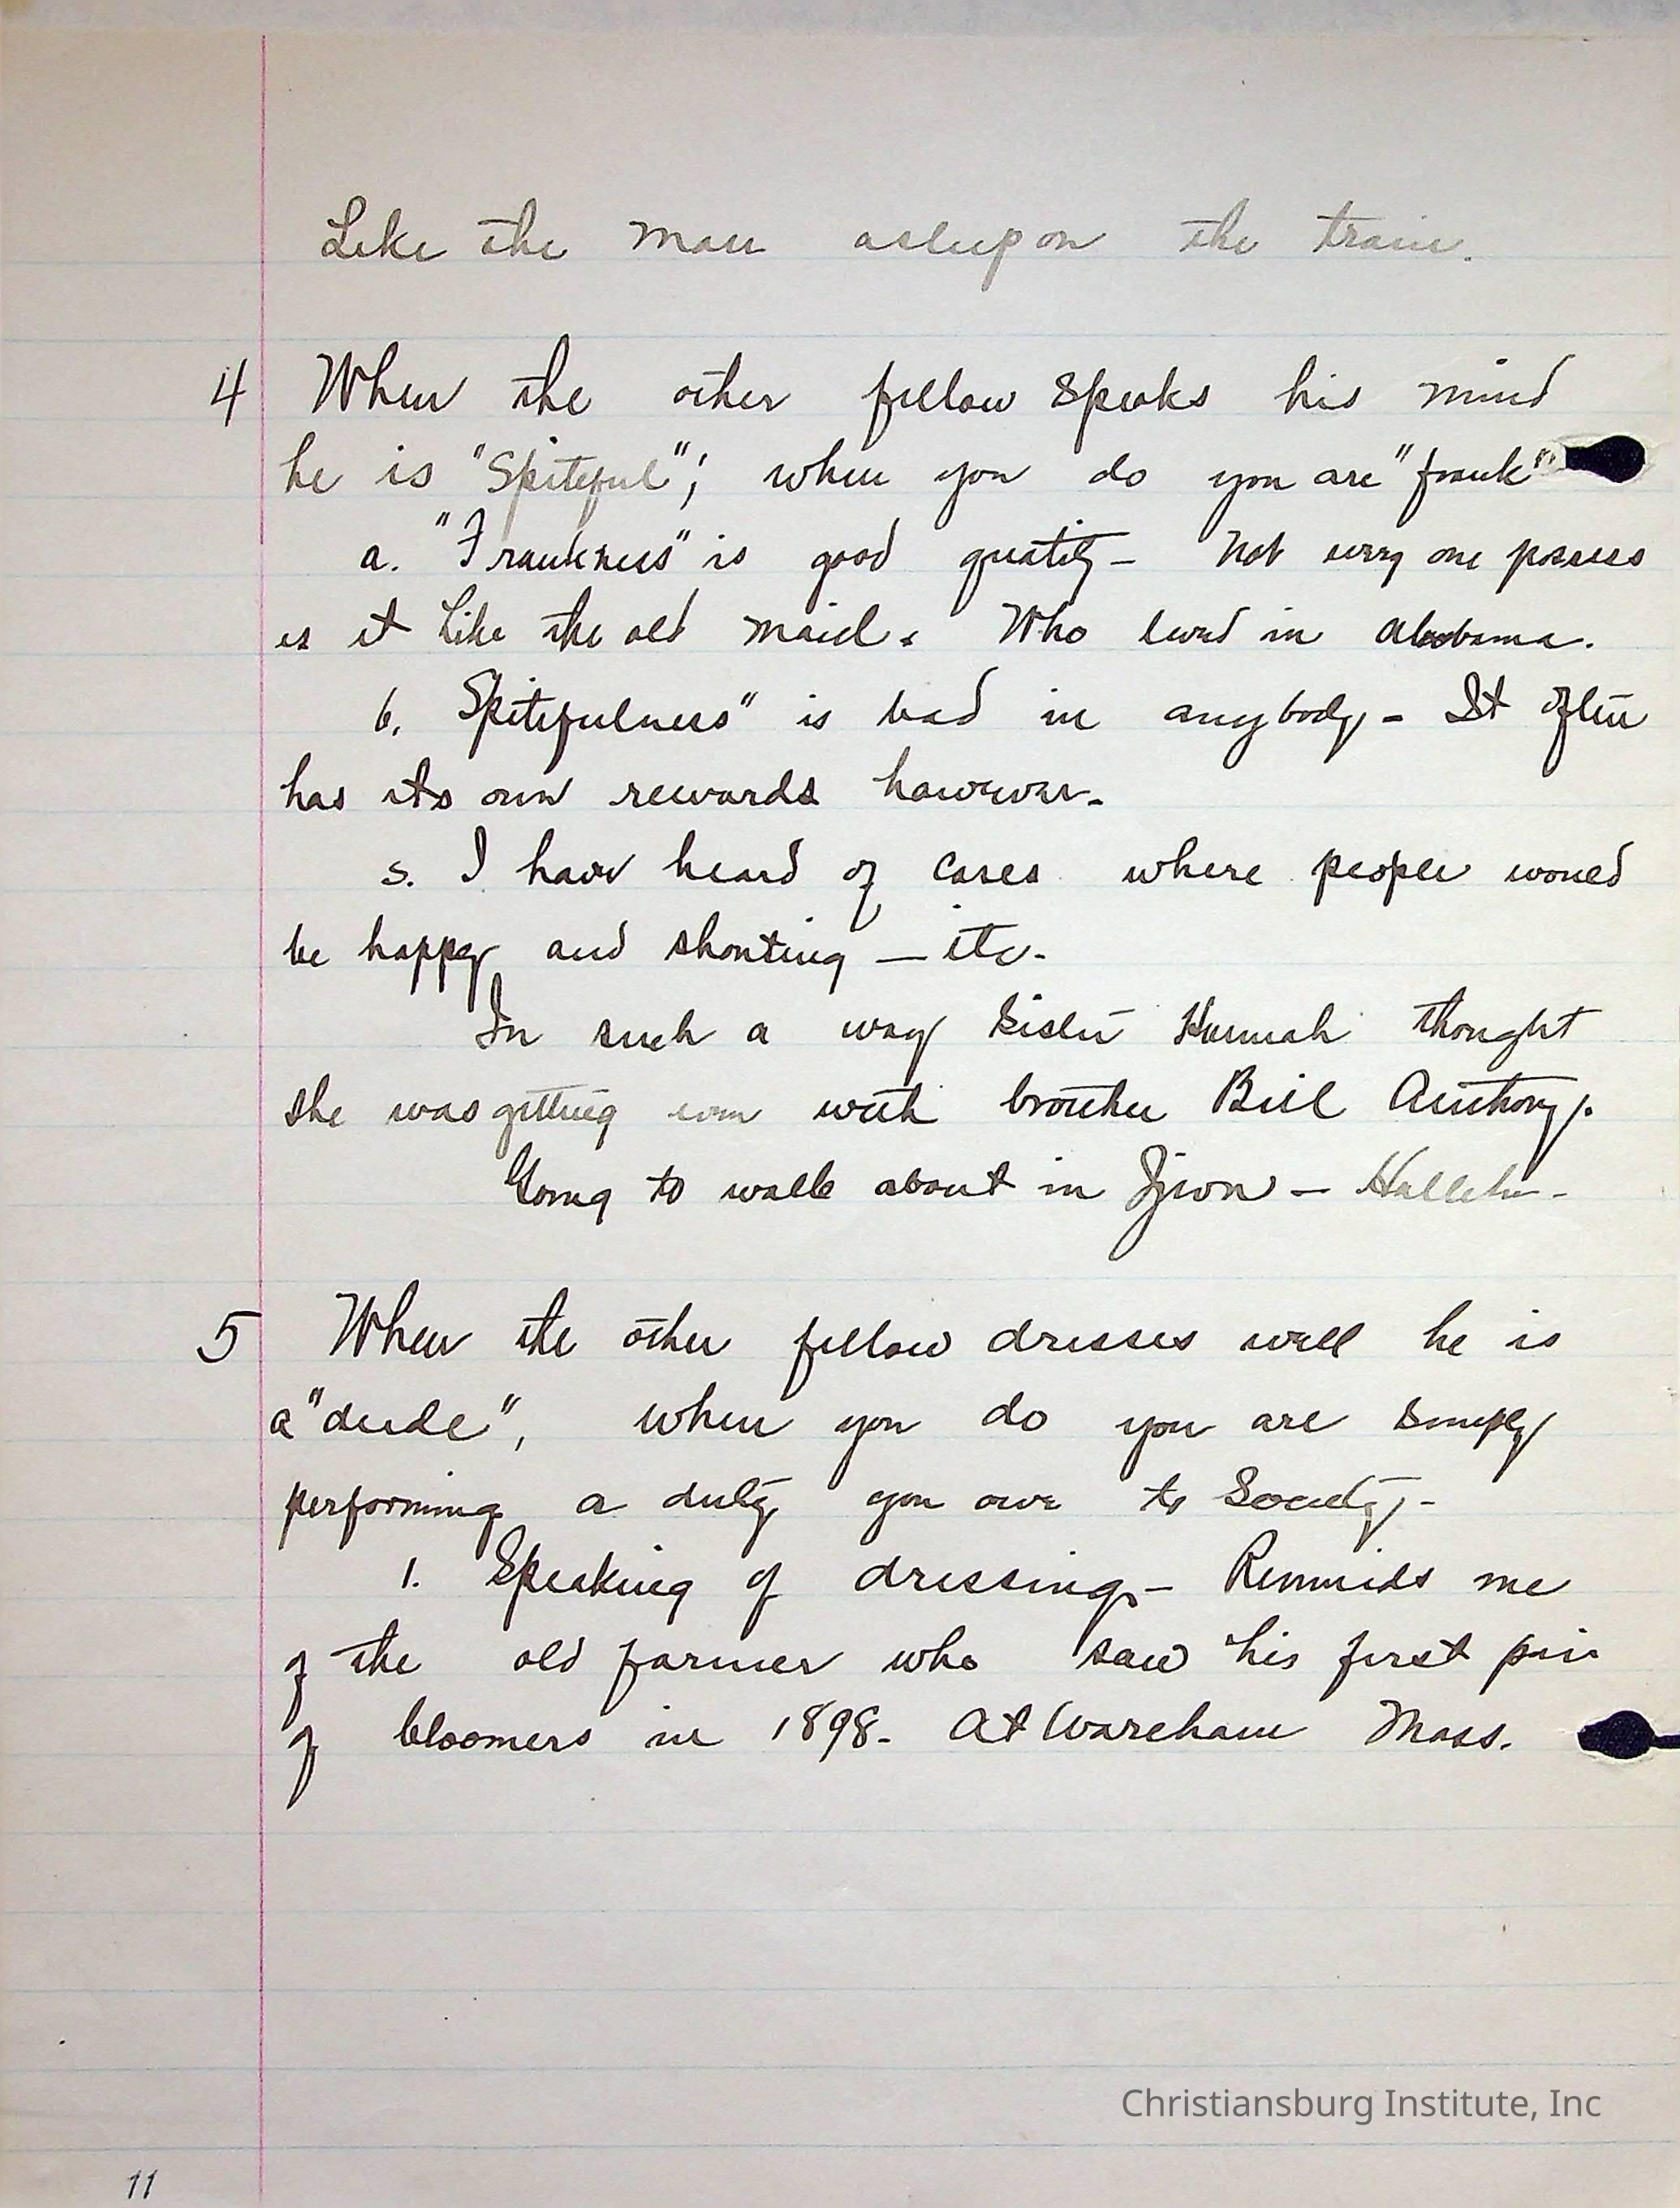 Like the man asleep on the train.
4 When the other fellow speaks his mind
he is "Spiteful"; when you do you are "frank"
a. "Frankness" is good quality – Not every one possess
es it Like the old maid. Who lived in Alabama.
b. Spitefulness" is bad in anybody – It often
has its own rewards however.
s. I have heard of cases where people would
be happy and shouting — etc.
In such a way Sister Hannah thought
she was getting even with brother Bill Anthony.
Going to walk about in Zion – Hallelu –
5 When the other fellow dresses well he is
a "dude", when you do you are simply
performing a duty you owe to Society –
1. Speaking of dressing – Reminds me
of the old farmer who saw his first pair
of bloomers in 1898. At Wareham Mass.
Christiansburg Institute, Inc
11